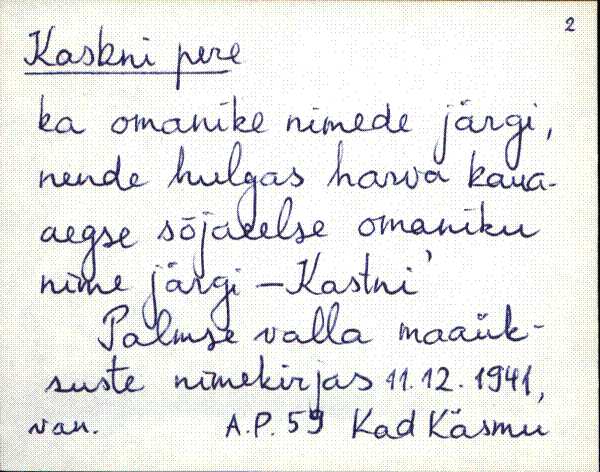 2
Kaskni pere
ka omanike nimede järgi,
nende hulgas harva kaua-
aegse sõjaeelse omaniku
nime järgi – Kastni'
Palmse valla maaük-
suste nimekirjas 11.12.1941,
van. A.P. 59 Kad Käsmu